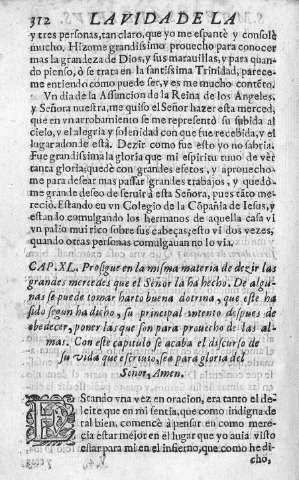 312 LA VIDA DE LA
y tres personas, tan claro, que yo me espantè y consolè
mucho. Hizome grandissimo prouecho para conocer
mas la grandeza de Dios, y sus marauillas, y para quan-
do pienso, ò se trata en la santissima Trinidad, parece-
me entiendo como puede ser, y es me mucho contẽto.
Vn dia de la Assuncion de la Reina de los Angeles,
y Señora nuestra, me quiso el Señor hazer esta merced,
que en vn arrobamiento se me representò su subida al
cielo, y el alegria y solenidad con que fue recebida, y el
lugar adonde està. Dezir como fue esto yo no sabria.
Fue grandissima la gloria que mi espiritu tuuo de ver
tanta gloria; quedè con grandes efetos, y aprouecho-
me para dessear mas passar grandes trabajos, y quedò-
me grande desseo de seruir à esta Señora, pues tãto me-
reciò. Estando en vn Colegio de la Cõpañia de Iesus, y
estando comulgando los hermanos de aquella casa vi
vn palio mui rico sobre sus cabeças; esto vi dos vezes,
quando otras personas comulgauan no lo via.
CAP. XL. Prosigue en la misma materia de dezir las
grandes mercedes que el Señor la ha hecho. De algu-
nas se puede tomar harto buena dotrina, que este ha
sido segun ha dicho, su principal intento despues de
obedecer, poner las que son para prouecho de las al-
mas. Con este capitulo se acaba el discurso de
su vida que escriuio, sea para gloria del
Señor, Amen.
EStando vna vez en oracion, era tanto el de-
leite que en mi sentia, que como indigna de
tal bien, comencè à pensar en como mere-
cia estar mejor en el lugar que yo auia visto
estar para mi en el infierno, que como he di-
cho,